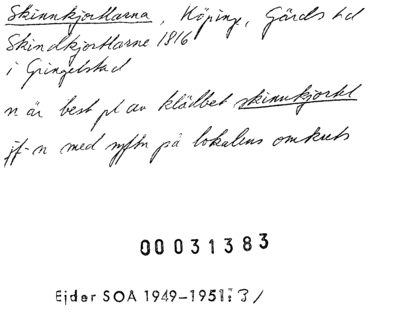 Skinnkjortlarna, Köpinge, Gärds hd
Skindkjortlarne 1816
i Gringelstad
n är best pl av klädbet skinnkjortel
jf-n med syftn på lokalens omkrets
00031383
Ejder SOA 1949-1951: 31